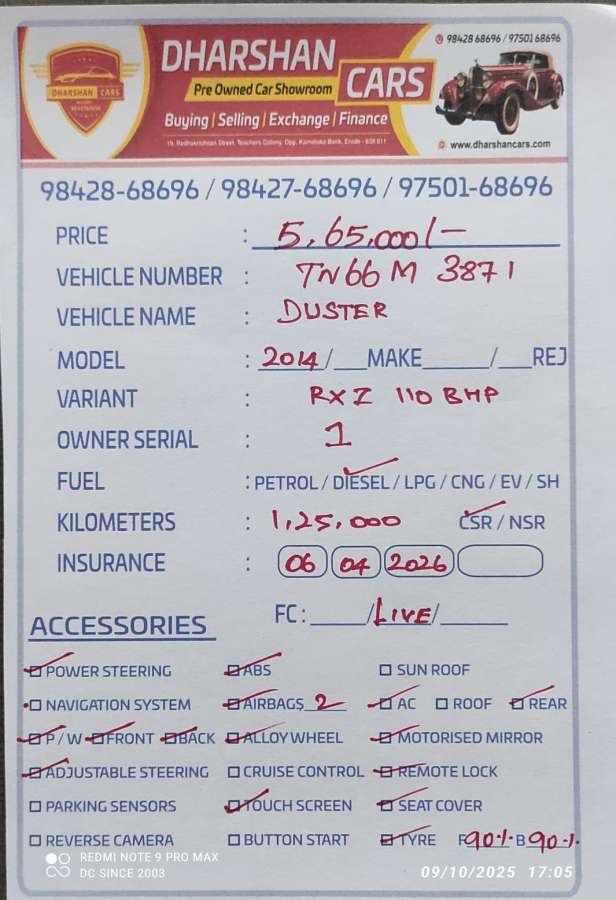 98428 68696 / 97501 68696
DHARSHAN CARS
DHARSHAN
CARS
Pre Owned Car Showroom
Buying | Selling | Exchange | Finance
19, Radhakrishnan Street, Teachers Colony, Opp. Karnataka Bank, Erode - 638 011
www.dharshancars.com
98428-68696 / 98427-68696 / 97501-68696
PRICE : 5,65,000/-
VEHICLE NUMBER : TN66 M 3871
VEHICLE NAME : DUSTER
MODEL : 2014/__MAKE_____/__REJ
VARIANT : RXZ 110 BHP
OWNER SERIAL : 1
FUEL : PETROL / DIESEL / LPG / CNG / EV / SH
KILOMETERS : 1,25,000 CSR / NSR
INSURANCE : 06 04 2026
FC : ____/LIVE/_____
ACCESSORIES
POWER STEERING ABS SUN ROOF
NAVIGATION SYSTEM AIRBAGS 2 AC ROOF REAR
P / W FRONT BACK ALLOY WHEEL MOTORISED MIRROR
ADJUSTABLE STEERING CRUISE CONTROL REMOTE LOCK
PARKING SENSORS TOUCH SCREEN SEAT COVER
REVERSE CAMERA BUTTON START TYRE F 90% B 90%
REDMI NOTE 9 PRO MAX
DC SINCE 2003
09/10/2025 17:05